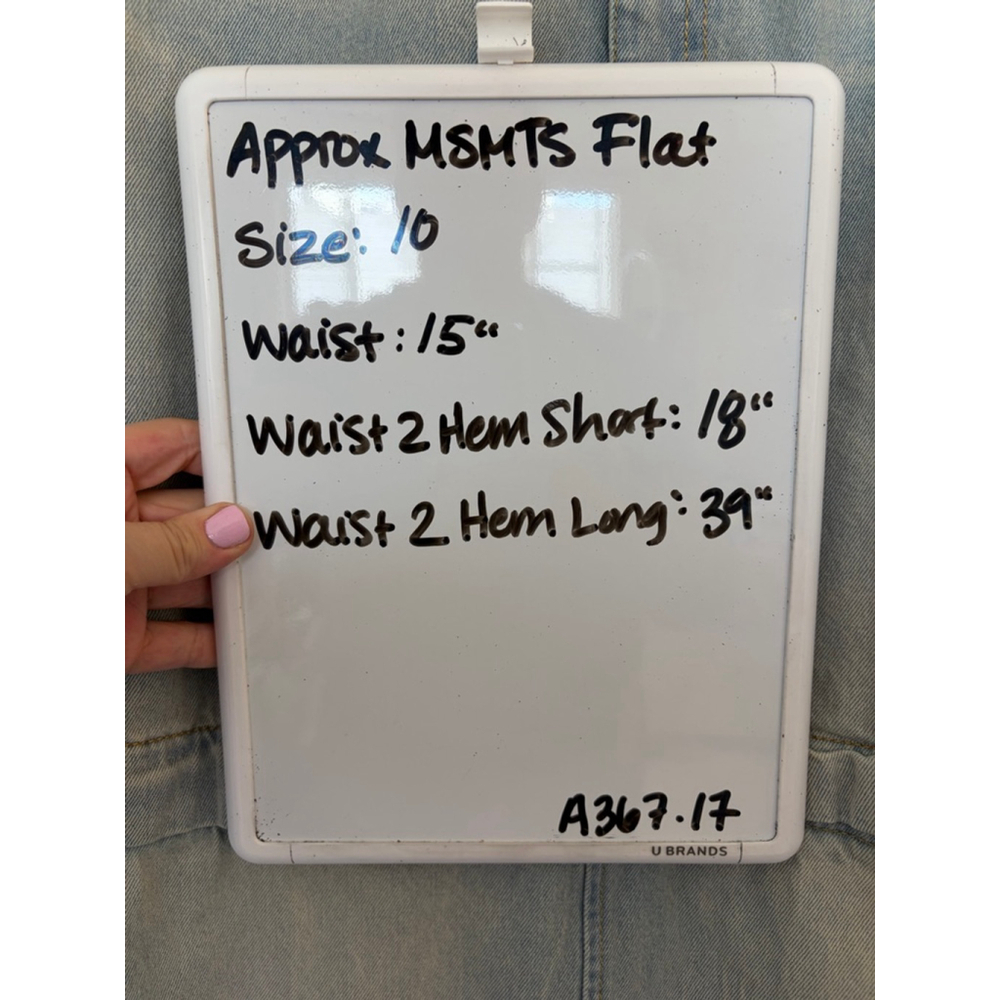 Approx MSMTS Flat
Size: 10
Waist: 15"
Waist 2 Hem Short: 18"
Waist 2 Hem Long: 39"
A367.17
U BRANDS